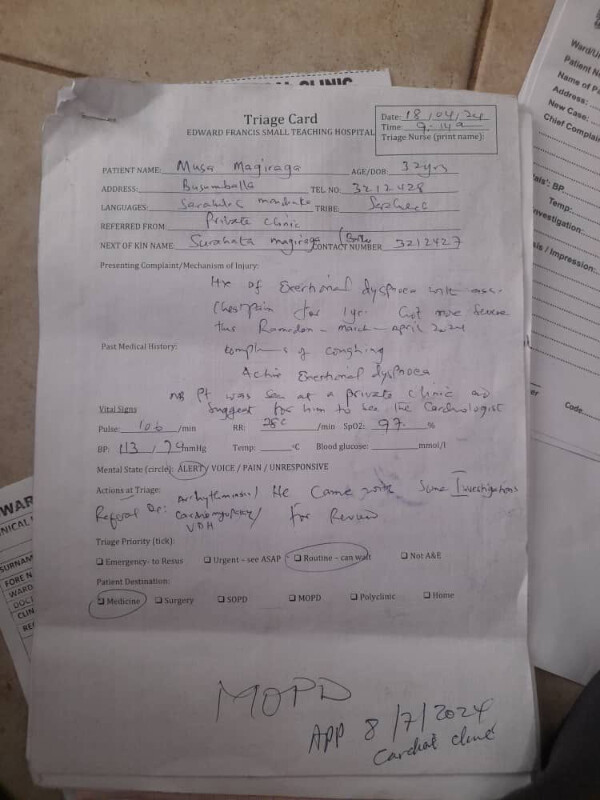 AL CLINIC
Triage Card
EDWARD FRANCIS SMALL TEACHING HOSPITAL
Date: 18/04/24
Time: 9:14a
Triage Nurse (print name):
PATIENT NAME: Musa Magiraga AGE/DOB: 32yrs
ADDRESS: Busumballa TEL NO: 3212428
LANGUAGES: TRIBE:
REFERRED FROM Private clinic
NEXT OF KIN NAME CONTACT NUMBER 3212427
Presenting Complaint/Mechanism of Injury:
Hx of Exertional dyspnoea with ass.
Chest pain for 1yr. Got more severe
this Ramadan - march - april 2024
Past Medical History:
complains of coughing
Active Exertional dyspnoea
NB Pt was see at a private clinic and
suggest for him to see the Cardiologist
Vital Signs
Pulse: 106 /min RR: /min SpO2: 97 %
BP: 113/79 mmHg Temp: °C Blood glucose: mmol/l
Mental State (circle): ALERT/ VOICE / PAIN / UNRESPONSIVE
Actions at Triage: He came with some Investigations
Referal for Review
Triage Priority (tick):
Emergency- to Resus Urgent – see ASAP Routine – can wait Not A&E
Patient Destination:
Medicine Surgery SOPD MOPD Polyclinic Home
MOPD
APP 8/7/2024
clinic
Ward/Un
Patient N
Name of Pa
Address:
New Case:
Chief Complain
BP
Temp:
nvestigation:
is / Impression:
Code
WAR
INICAL
SURNAM
FORE N
WARD
DOC
CLIN
RE